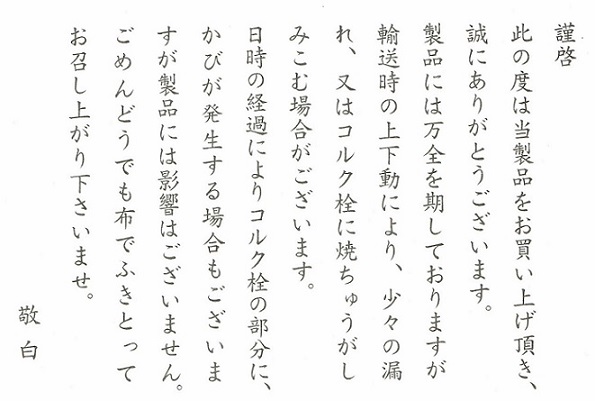 謹啓
此の度は当製品をお買い上げ頂き、
誠にありがとうございます。
製品には万全を期しておりますが
輸送時の上下動により、少々の漏
れ、又はコルク栓に焼ちゅうがし
みこむ場合がございます。
日時の経過によりコルク栓の部分に、
かびが発生する場合もございま
すが製品には影響はございません。
ごめんどうでも布でふきとって
お召し上がり下さいませ。
敬白